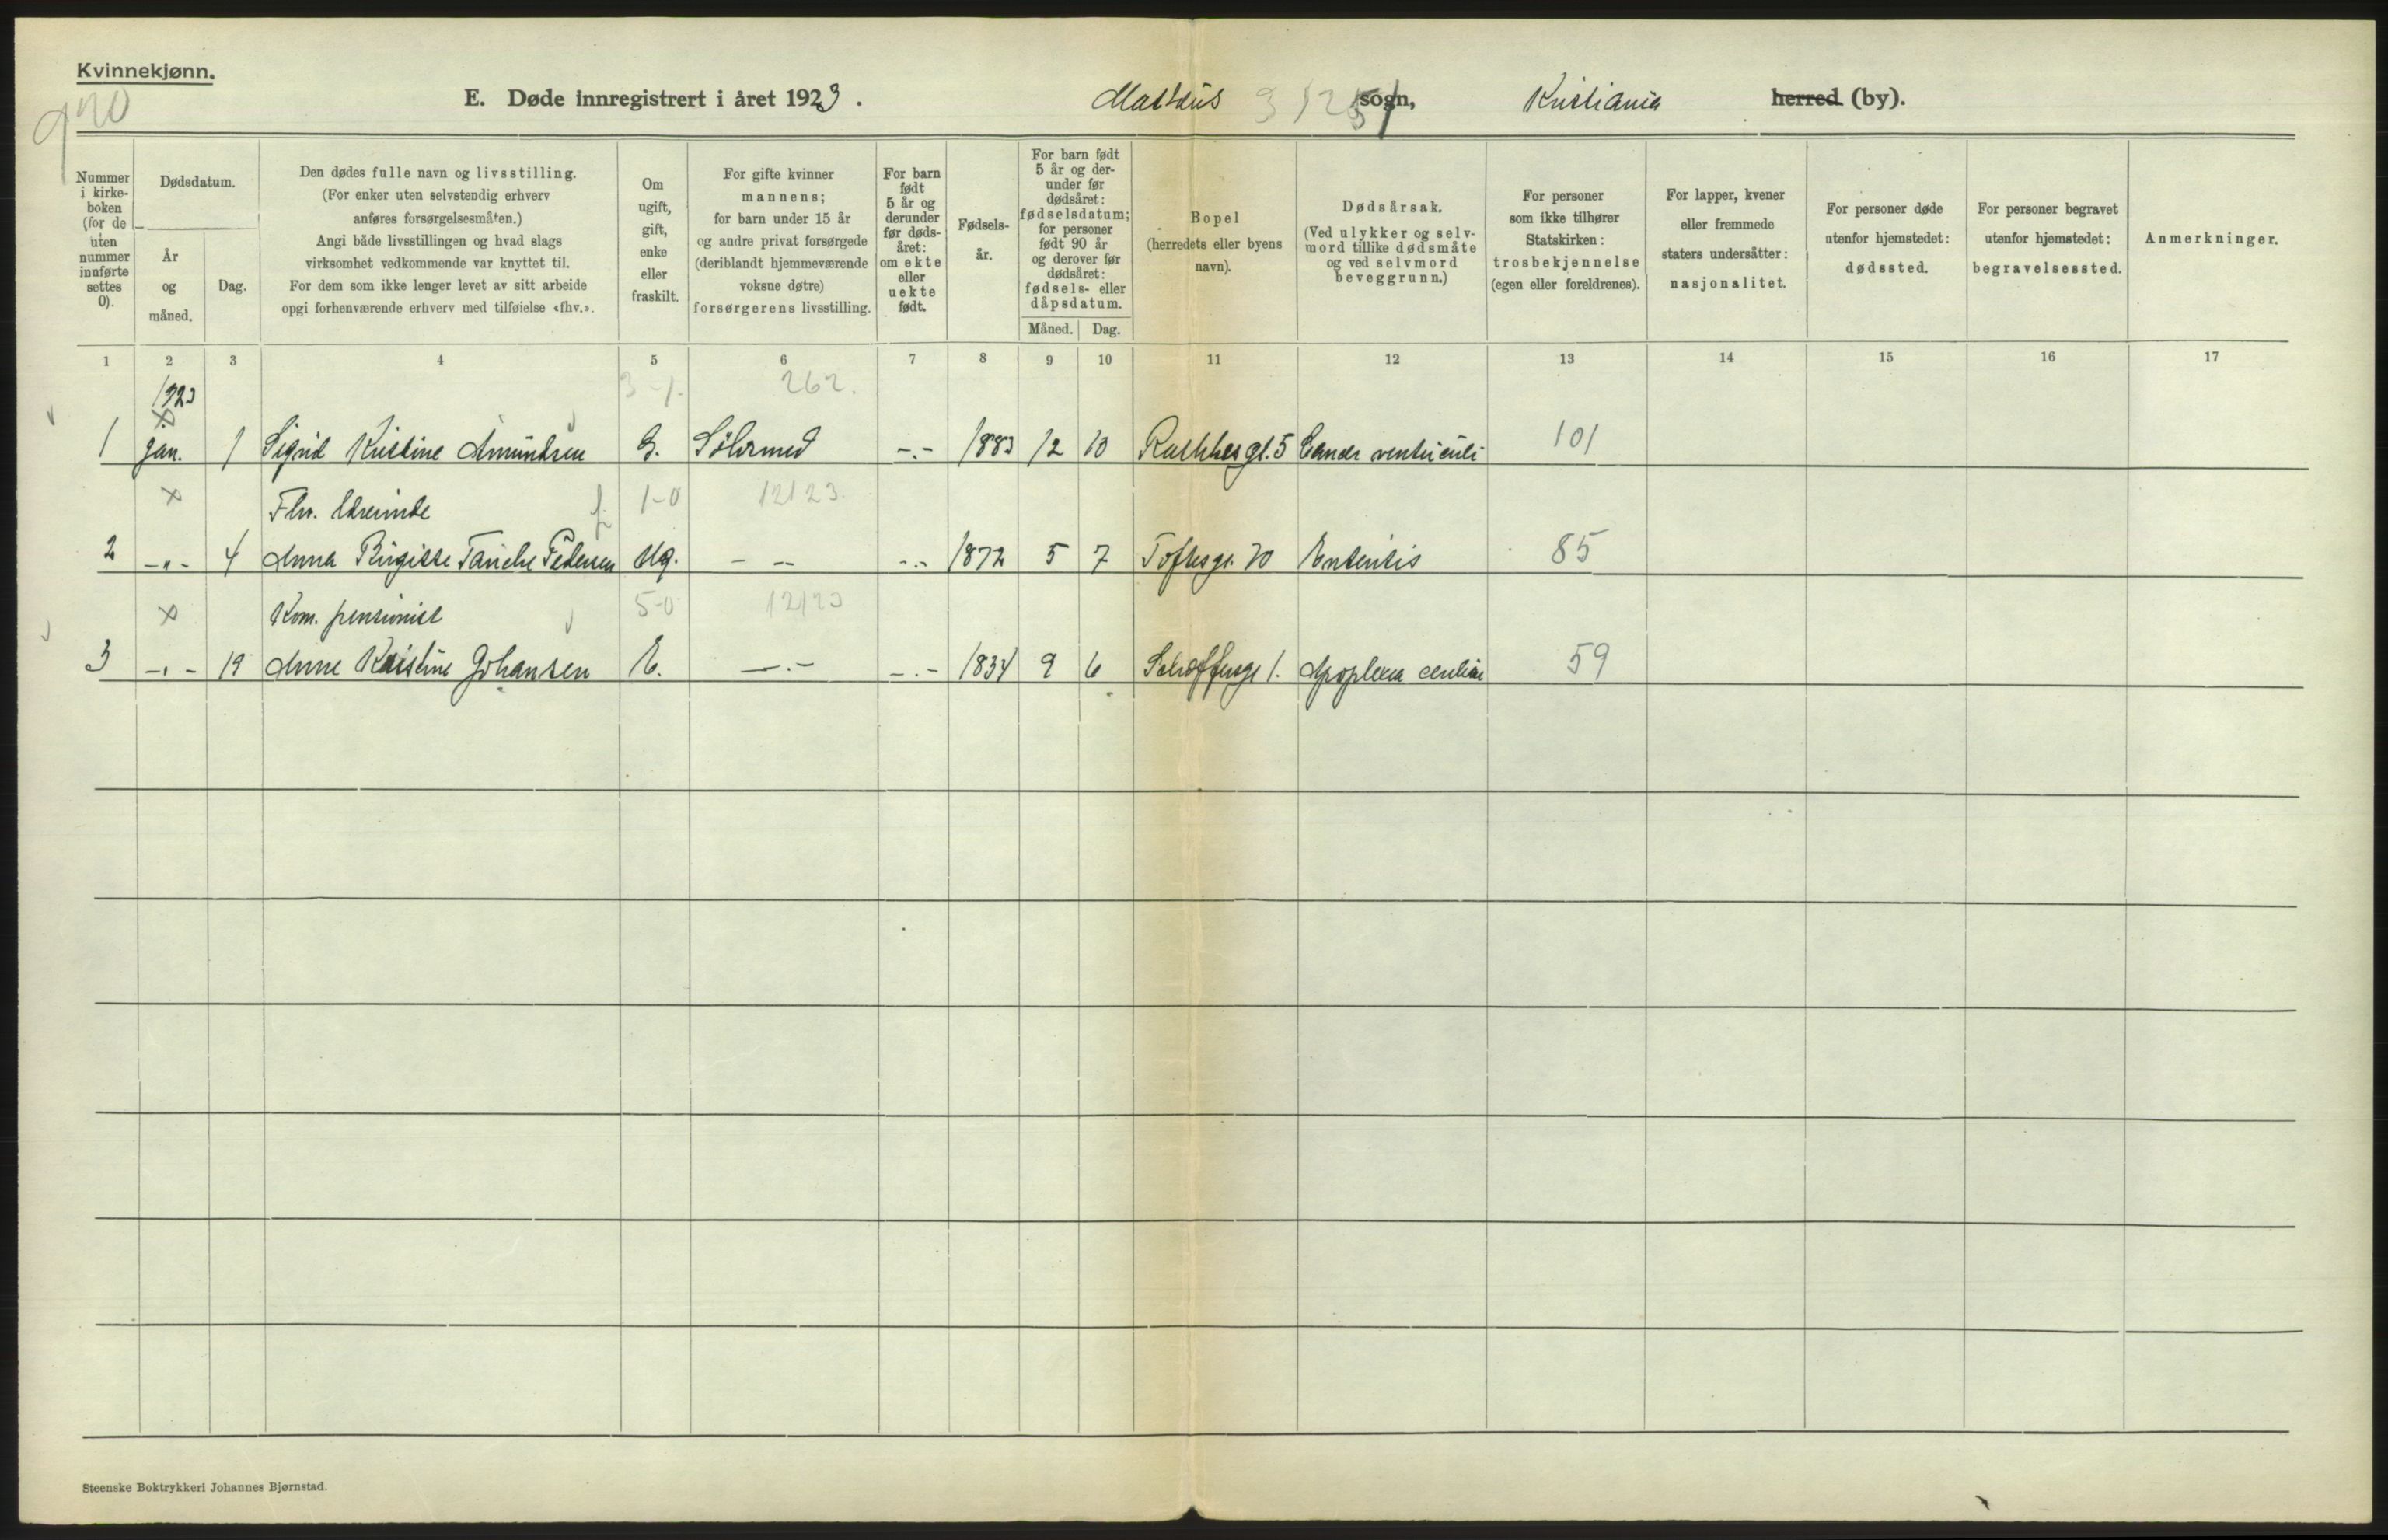 Kvinnekjønn.
E. Døde innregistrert i året 1923.
Mattæus sogn,
Kristiania herred (by).
Nummer
i kirke-
boken
(for de
uten
nummer
innførte
settes
0).
Dødsdatum.
År
og
måned.
Dag.
Den dødes fulle navn og livsstilling.
(For enker uten selvstendig erhverv
anføres forsørgelsesmåten.)
Angi både livsstillingen og hvad slags
virksomhet vedkommende var knyttet til.
For dem som ikke lenger levet av sitt arbeide
opgi forhenværende erhverv med tilføielse «fhv.».
Om
ugift,
gift,
enke
eller
fraskilt.
For gifte kvinner
mannens;
for barn under 15 år
og andre privat forsørgede
(deriblandt hjemmeværende
voksne døtre)
forsørgerens livsstilling.
For barn
født
5 år og
derunder
før døds-
året:
om ekte
eller
uekte
født.
Fødsels-
år.
For barn født
5 år og der-
under før
dødsåret:
fødselsdatum;
for personer
født 90 år
og derover før
dødsåret:
fødsels- eller
dåpsdatum.
Måned. Dag.
Bopel
(herredets eller byens
navn).
Dødsårsak.
(Ved ulykker og selv-
mord tillike dødsmåte
og ved selvmord
beveggrunn.)
For personer
som ikke tilhører
Statskirken:
trosbekjennelse
(egen eller foreldrenes).
For lapper, kvener
eller fremmede
staters undersåtter:
nasjonalitet.
For personer døde
utenfor hjemstedet:
dødssted.
For personer begravet
utenfor hjemstedet:
begravelsessted.
Anmerkninger.
1 2 3 4 5 6 7 8 9 10 11 12 13 14 15 16 17
1923 3-1. 262.
1 Jan. 1 Sigrid Kristine Amundsen G. -.- 1883 12 10 gt. 5 Cancer ventriculi 101
x Fhv. 1-0 12123.
2 -"- 4 Anna Birgitte Pedersen Ug. - -- -.- 1872 5 7 Toftesgt. 70 Enteritis 85
x Kom. pensionist 5-0 12123
3 -"- 19 Anne Kristine Johansen E. -.- -.- 1834 9 6 1. Apoplexia 59
Steenske Boktrykkeri Johannes Bjørnstad.